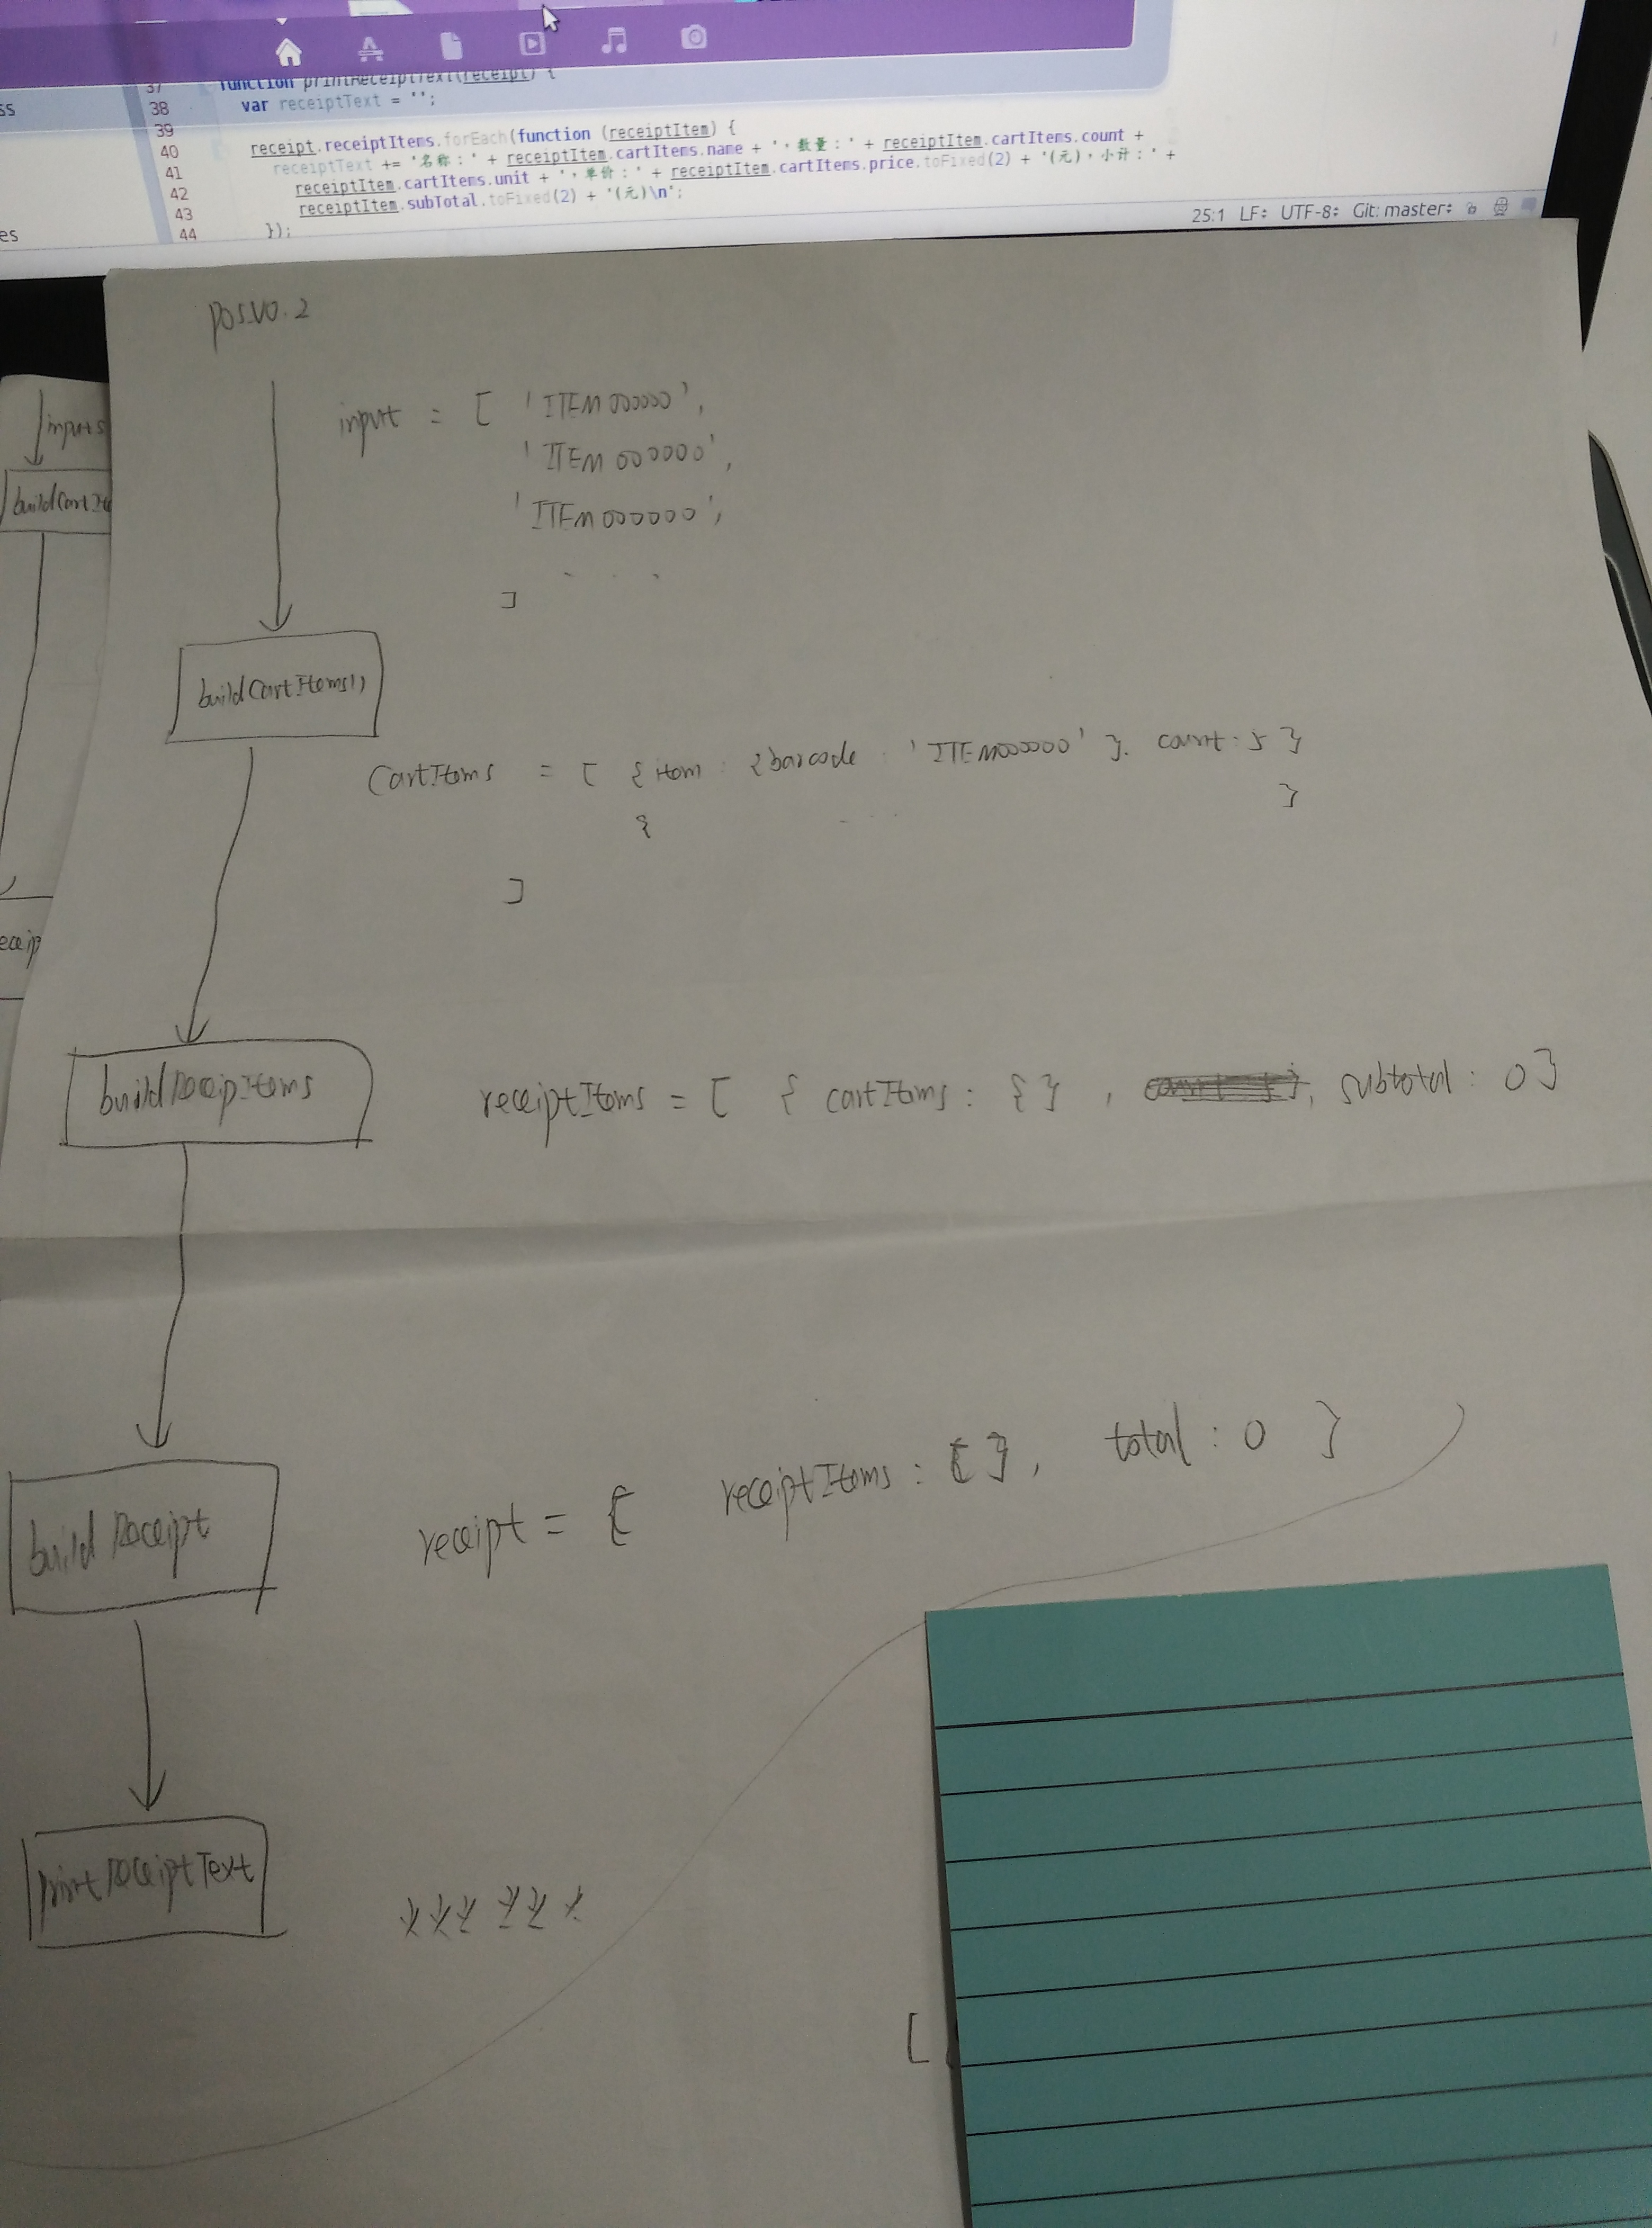 ss
37 function printReceiptText(receipt) {
38 var receiptText = '';
39
40 receipt.receiptItems.forEach(function (receiptItem) {
41 receiptText += '名称：' + receiptItem.cartItems.name + '，数量：' + receiptItem.cartItems.count +
42 receiptItem.cartItems.unit + '，单价：' + receiptItem.cartItems.price.toFixed(2) + '(元)，小计：' +
43 receiptItem.subTotal.toFixed(2) + '(元)\n';
44 });
es
25:1 LF÷ UTF-8÷ Git: master÷
pos_v0.2
inputs
buildCartIte
eceip
input = [ 'ITEM000000',
'ITEM000000',
'ITEM000000',
. . .
]
buildCartItems()
CartItems = [ {item : {barcode : 'ITEM000000' }. count : 5 }
{ . . . . }
]
buildReceipItems
receiptItems = [ { cartItems : { } , , subtotal : 0 }
buildReceipt
receipt = { receiptItems : [ ], total : 0 }
printReceiptText
* * * * * *
[